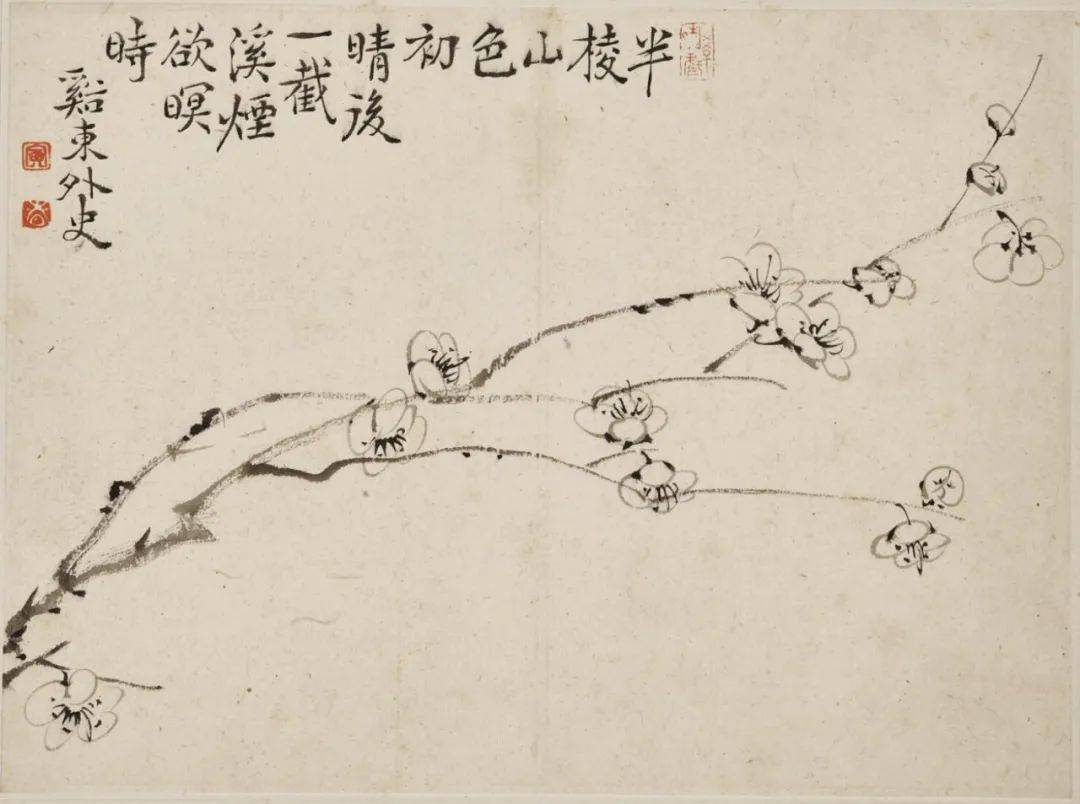 半
棱
山
色
初
晴後
一截
溪煙
欲暝
時
谿東外史